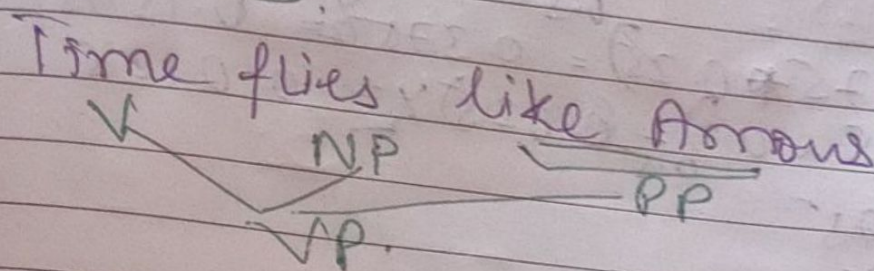 Time flies like Arrows
V NP PP
VP.